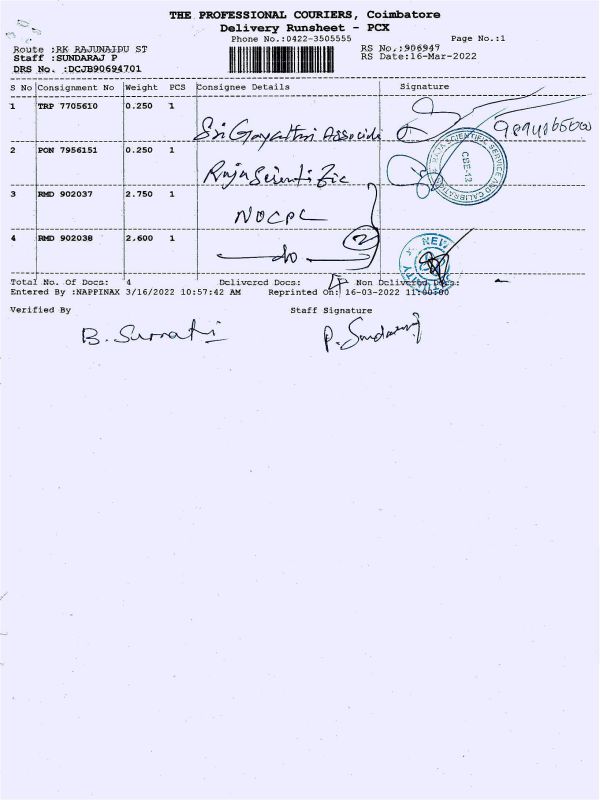 THE PROFESSIONAL COURIERS, Coimbatore
Delivery Runsheet - PCX
Phone No.:0422-3505555 Page No.:1
Route :RK RAJUNAIDU ST RS No.:906947
Staff :SUNDARAJ P RS Date:16-Mar-2022
DRS No. :DCJB90694701
S No Consignment No Weight PCS Consignee Details Signature
1 TRP 7705610 0.250 1
Sri Gayathri Associate
2 PON 7956151 0.250 1
Raja Scientific
SCIENTIFIC SERVICE AND CALIBRATION
CBE-12
3 RMD 902037 2.750 1
NOCPL
4 RMD 902038 2.600 1
do 2
NEW
Total No. Of Docs: 4 Delivered Docs: 4 Non Delivered Docs: -
Entered By :NAPPINAX 3/16/2022 10:57:42 AM Reprinted On: 16-03-2022 11:00:00
Verified By Staff Signature